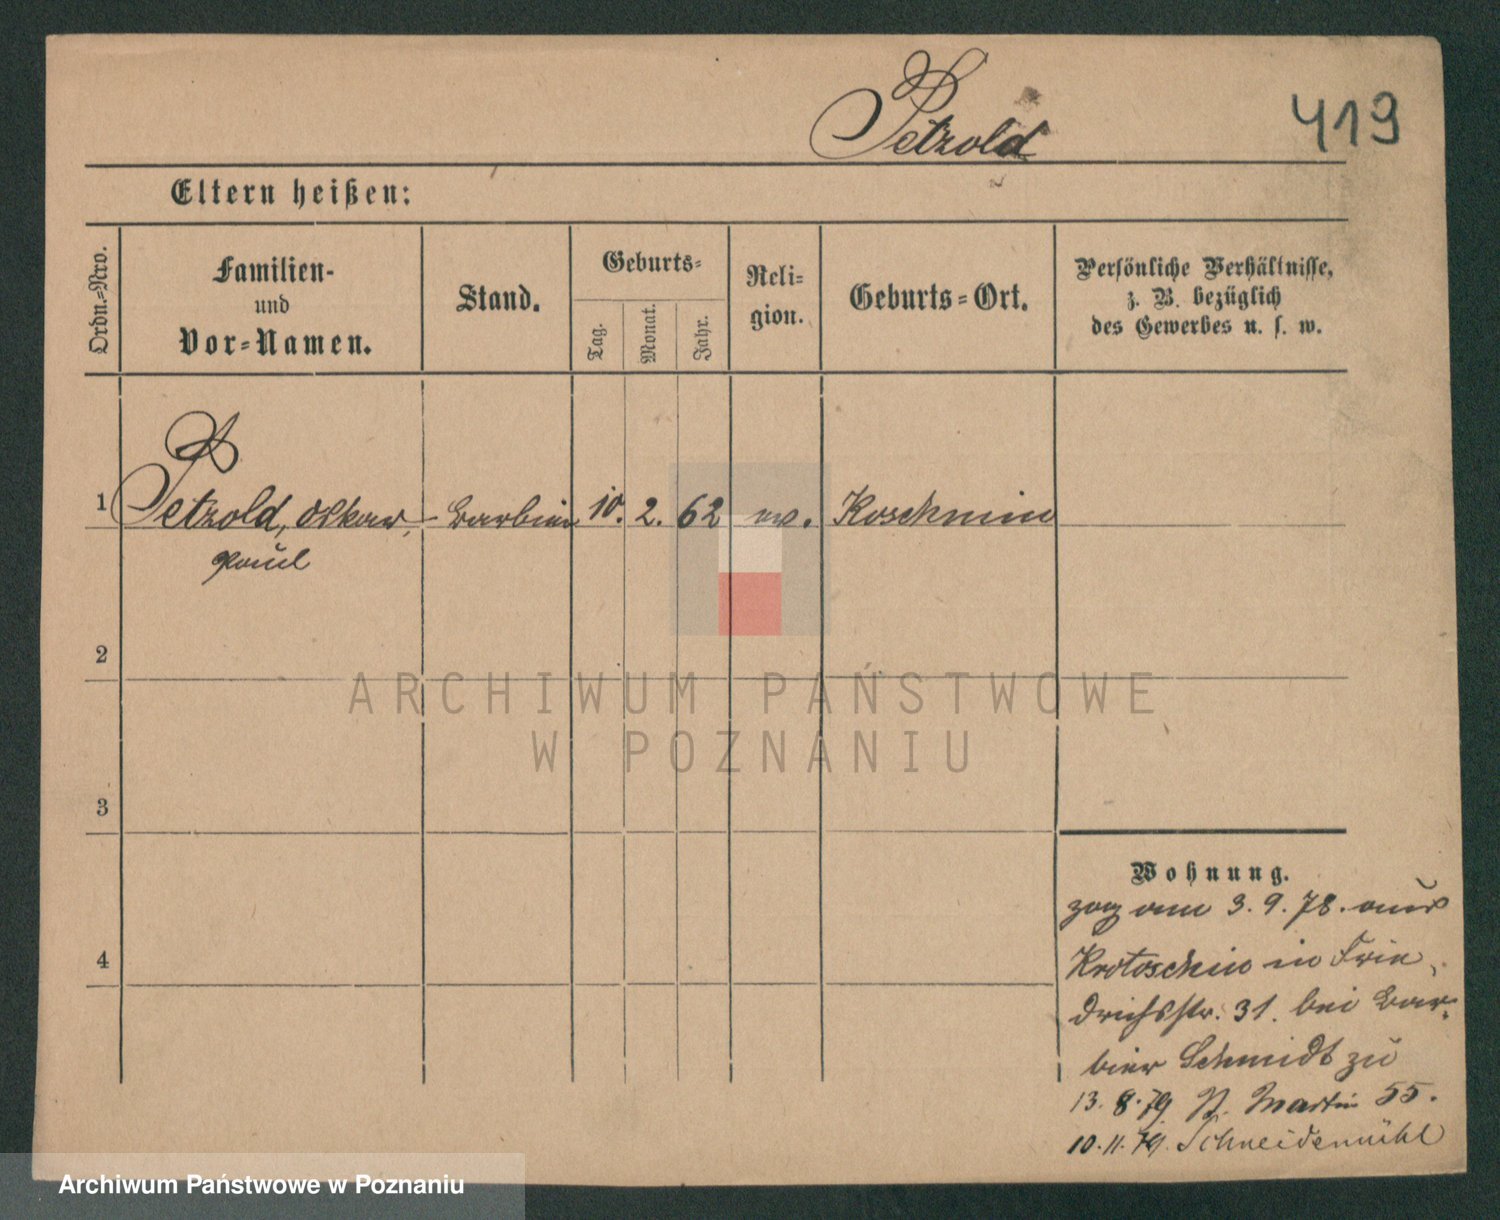 Petzold
419
Eltern heißen:
Ordn.=Nro.
Familien-
und
Vor=Namen.
Stand.
Geburts=
Tag.
Monat.
Jahr.
Reli=
gion.
Geburts=Ort.
Persönliche Verhältnisse,
z. B. bezüglich
des Gewerbes u. s. w.
1 Petzold, Oskar, Barbier 10. 2. 62 ev. Koschmin
Paul
2
3
4
Wohnung.
zog am 3. 9. 78. aus
Krotoschin in Frie-
drichsstr. 31. bei Bar-
bier Schmidt zu
13. 8. 79 St. Martin 55.
10. 11. 79. Schneidemühl
ARCHIWUM PAŃSTWOWE
W POZNANIU
Archiwum Państwowe w Poznaniu